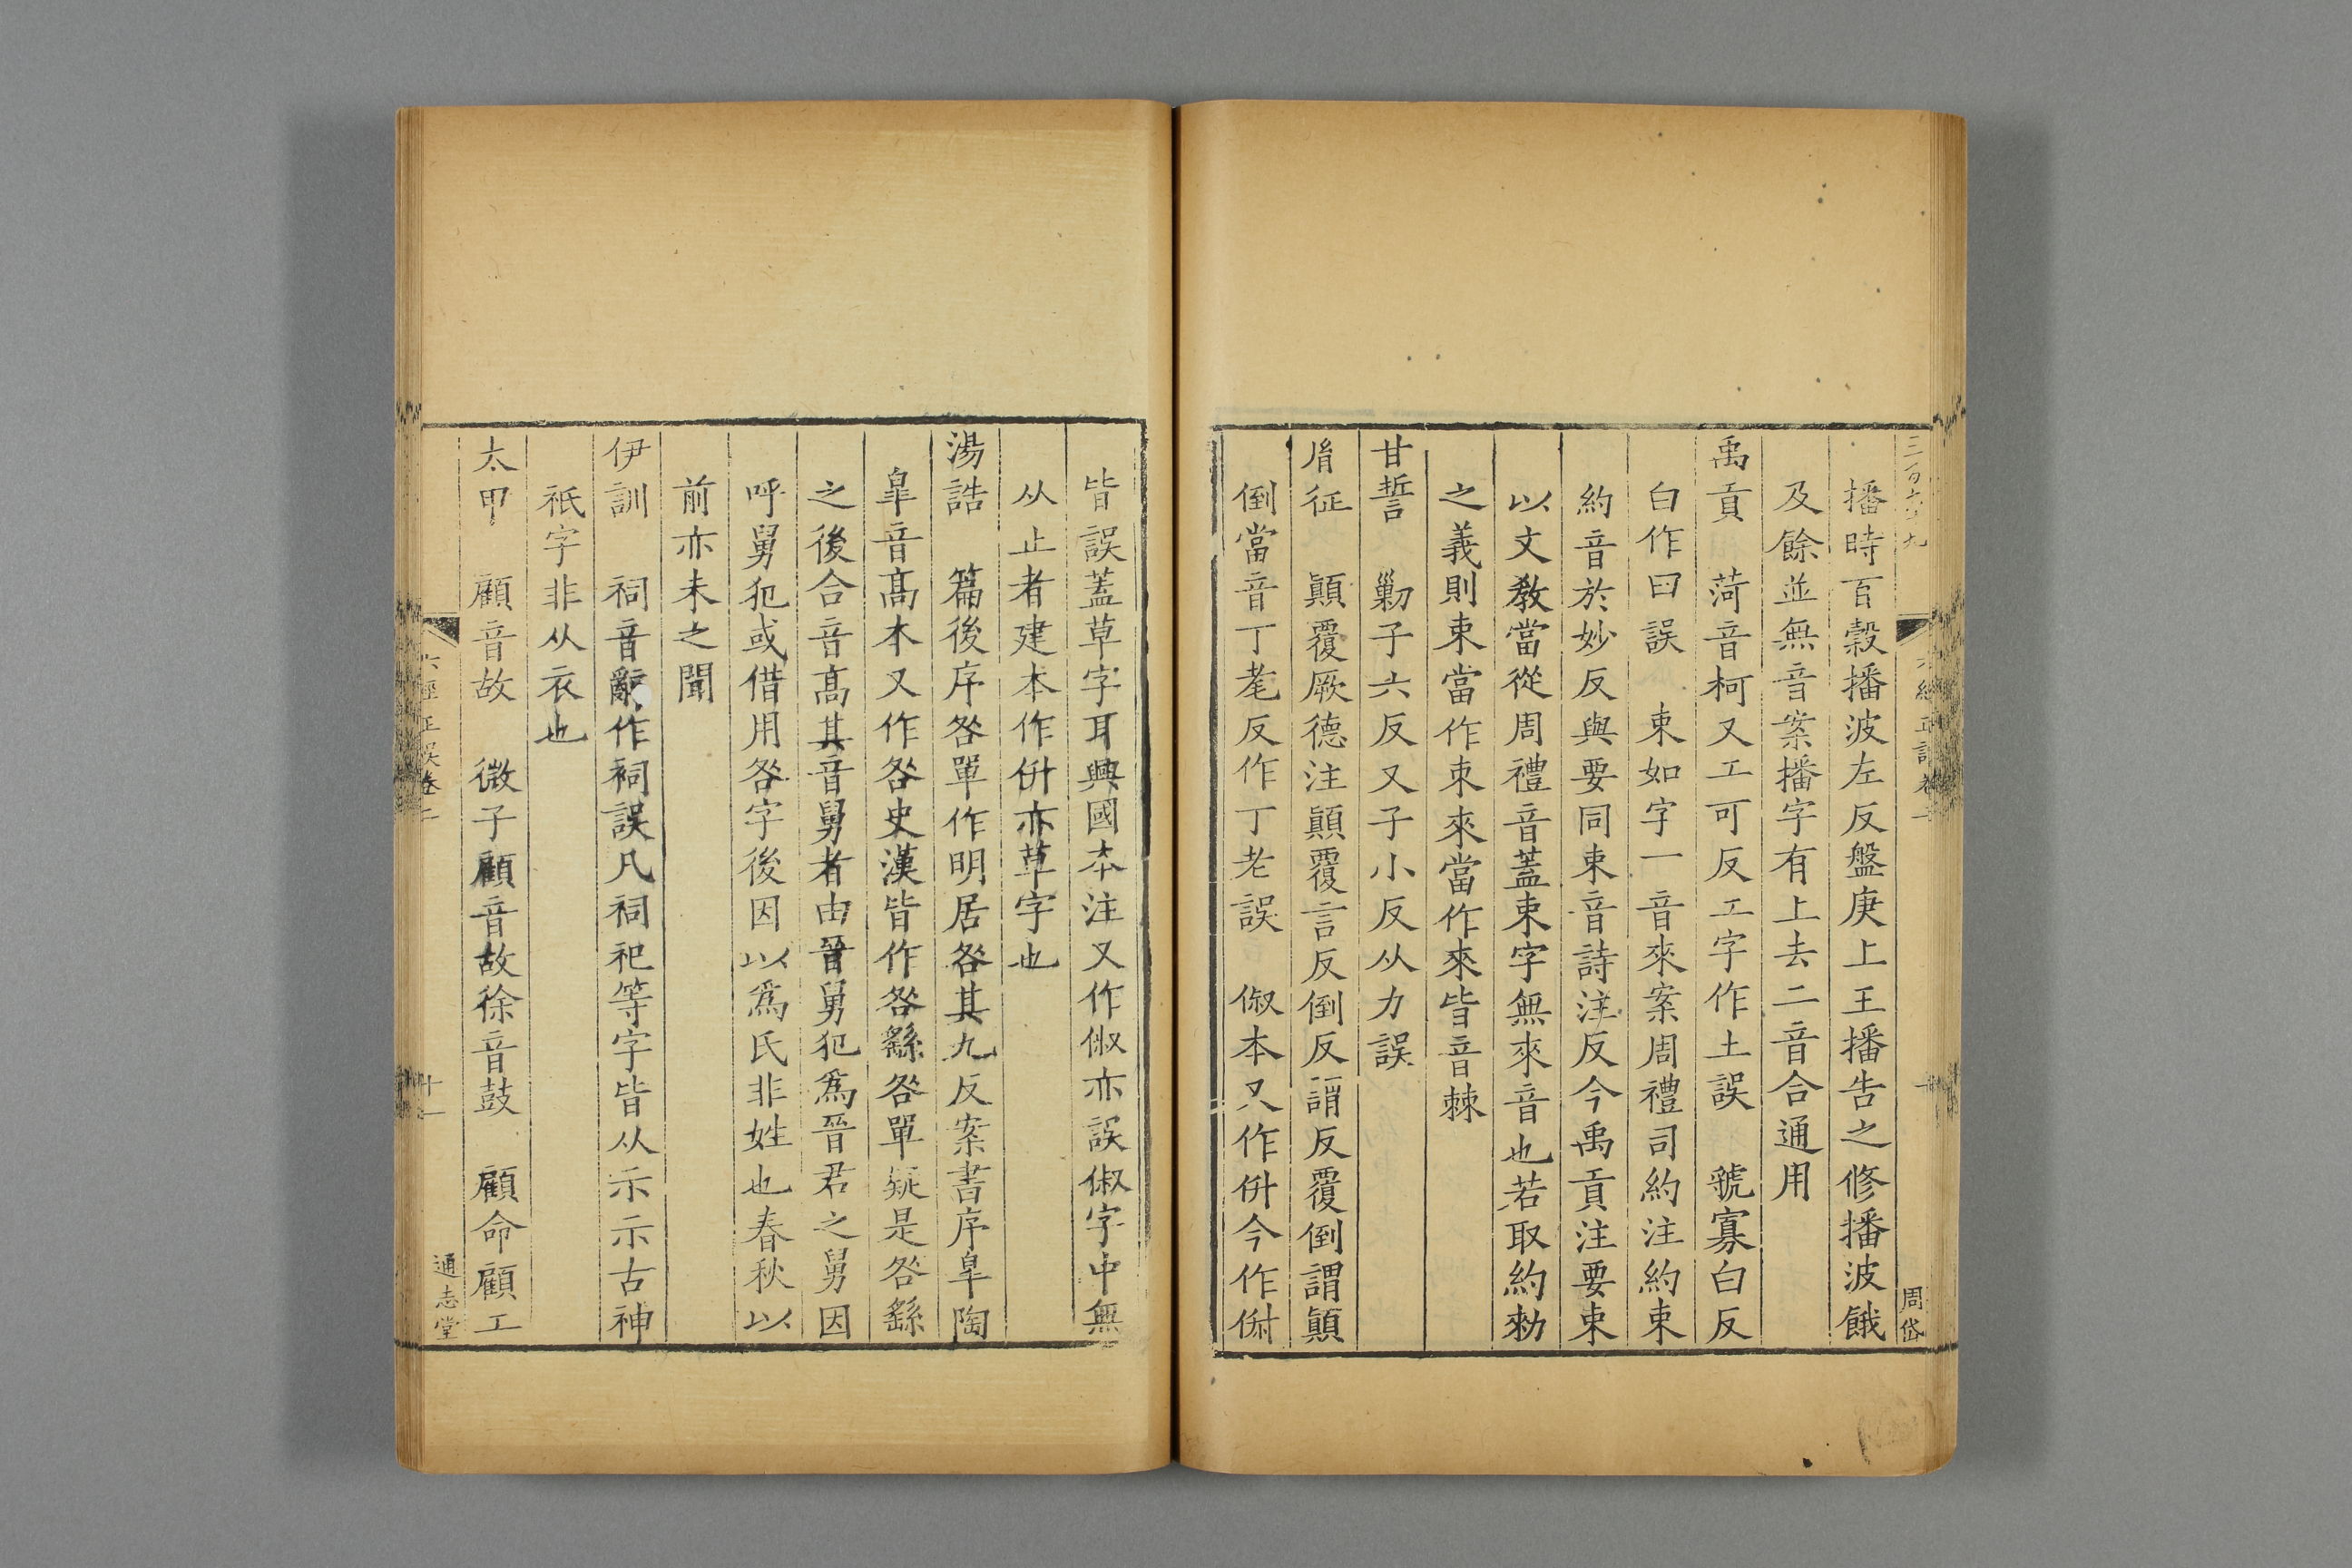 三百六十九
周岱
播時百穀播波左反盤庚上王播告之修播波餓
及餘並無音案播字有上去二音合通用
禹貢　菏音柯又工可反工字作土誤　虢寡白反
白作曰誤　束如字一音來案周禮司約注約束
約音於妙反與要同束音詩注反今禹貢注要束
以文教當從周禮音蓋束字無來音也若取約勑
之義則束當作朿來當作來皆音棘
甘誓　勦子六反又子小反从力誤
胤征　顚覆厥德注顚覆言反倒反謂反覆倒謂顚
倒當音丁耄反作丁老誤　俶本又作併今作
皆誤蓋草字耳興國本注又作俶亦誤俶字中無
从止者建本作併亦草字也
湯誥　篇後序咎單作明居咎其九反案書序皐陶
皐音高本又作咎史漢皆作咎繇咎單疑是咎繇
之後合音高其音舅者由晉舅犯爲晉君之舅因
呼舅犯或借用咎字後因以爲氏非姓也春秋以
前亦未之聞
伊訓　祠音辭作裪誤凡祠祀等字皆从示示古神
祇字非从衣也
太甲　顧音故　微子顧音故徐音鼓　顧命顧工
六經正誤卷二
十一
通志堂